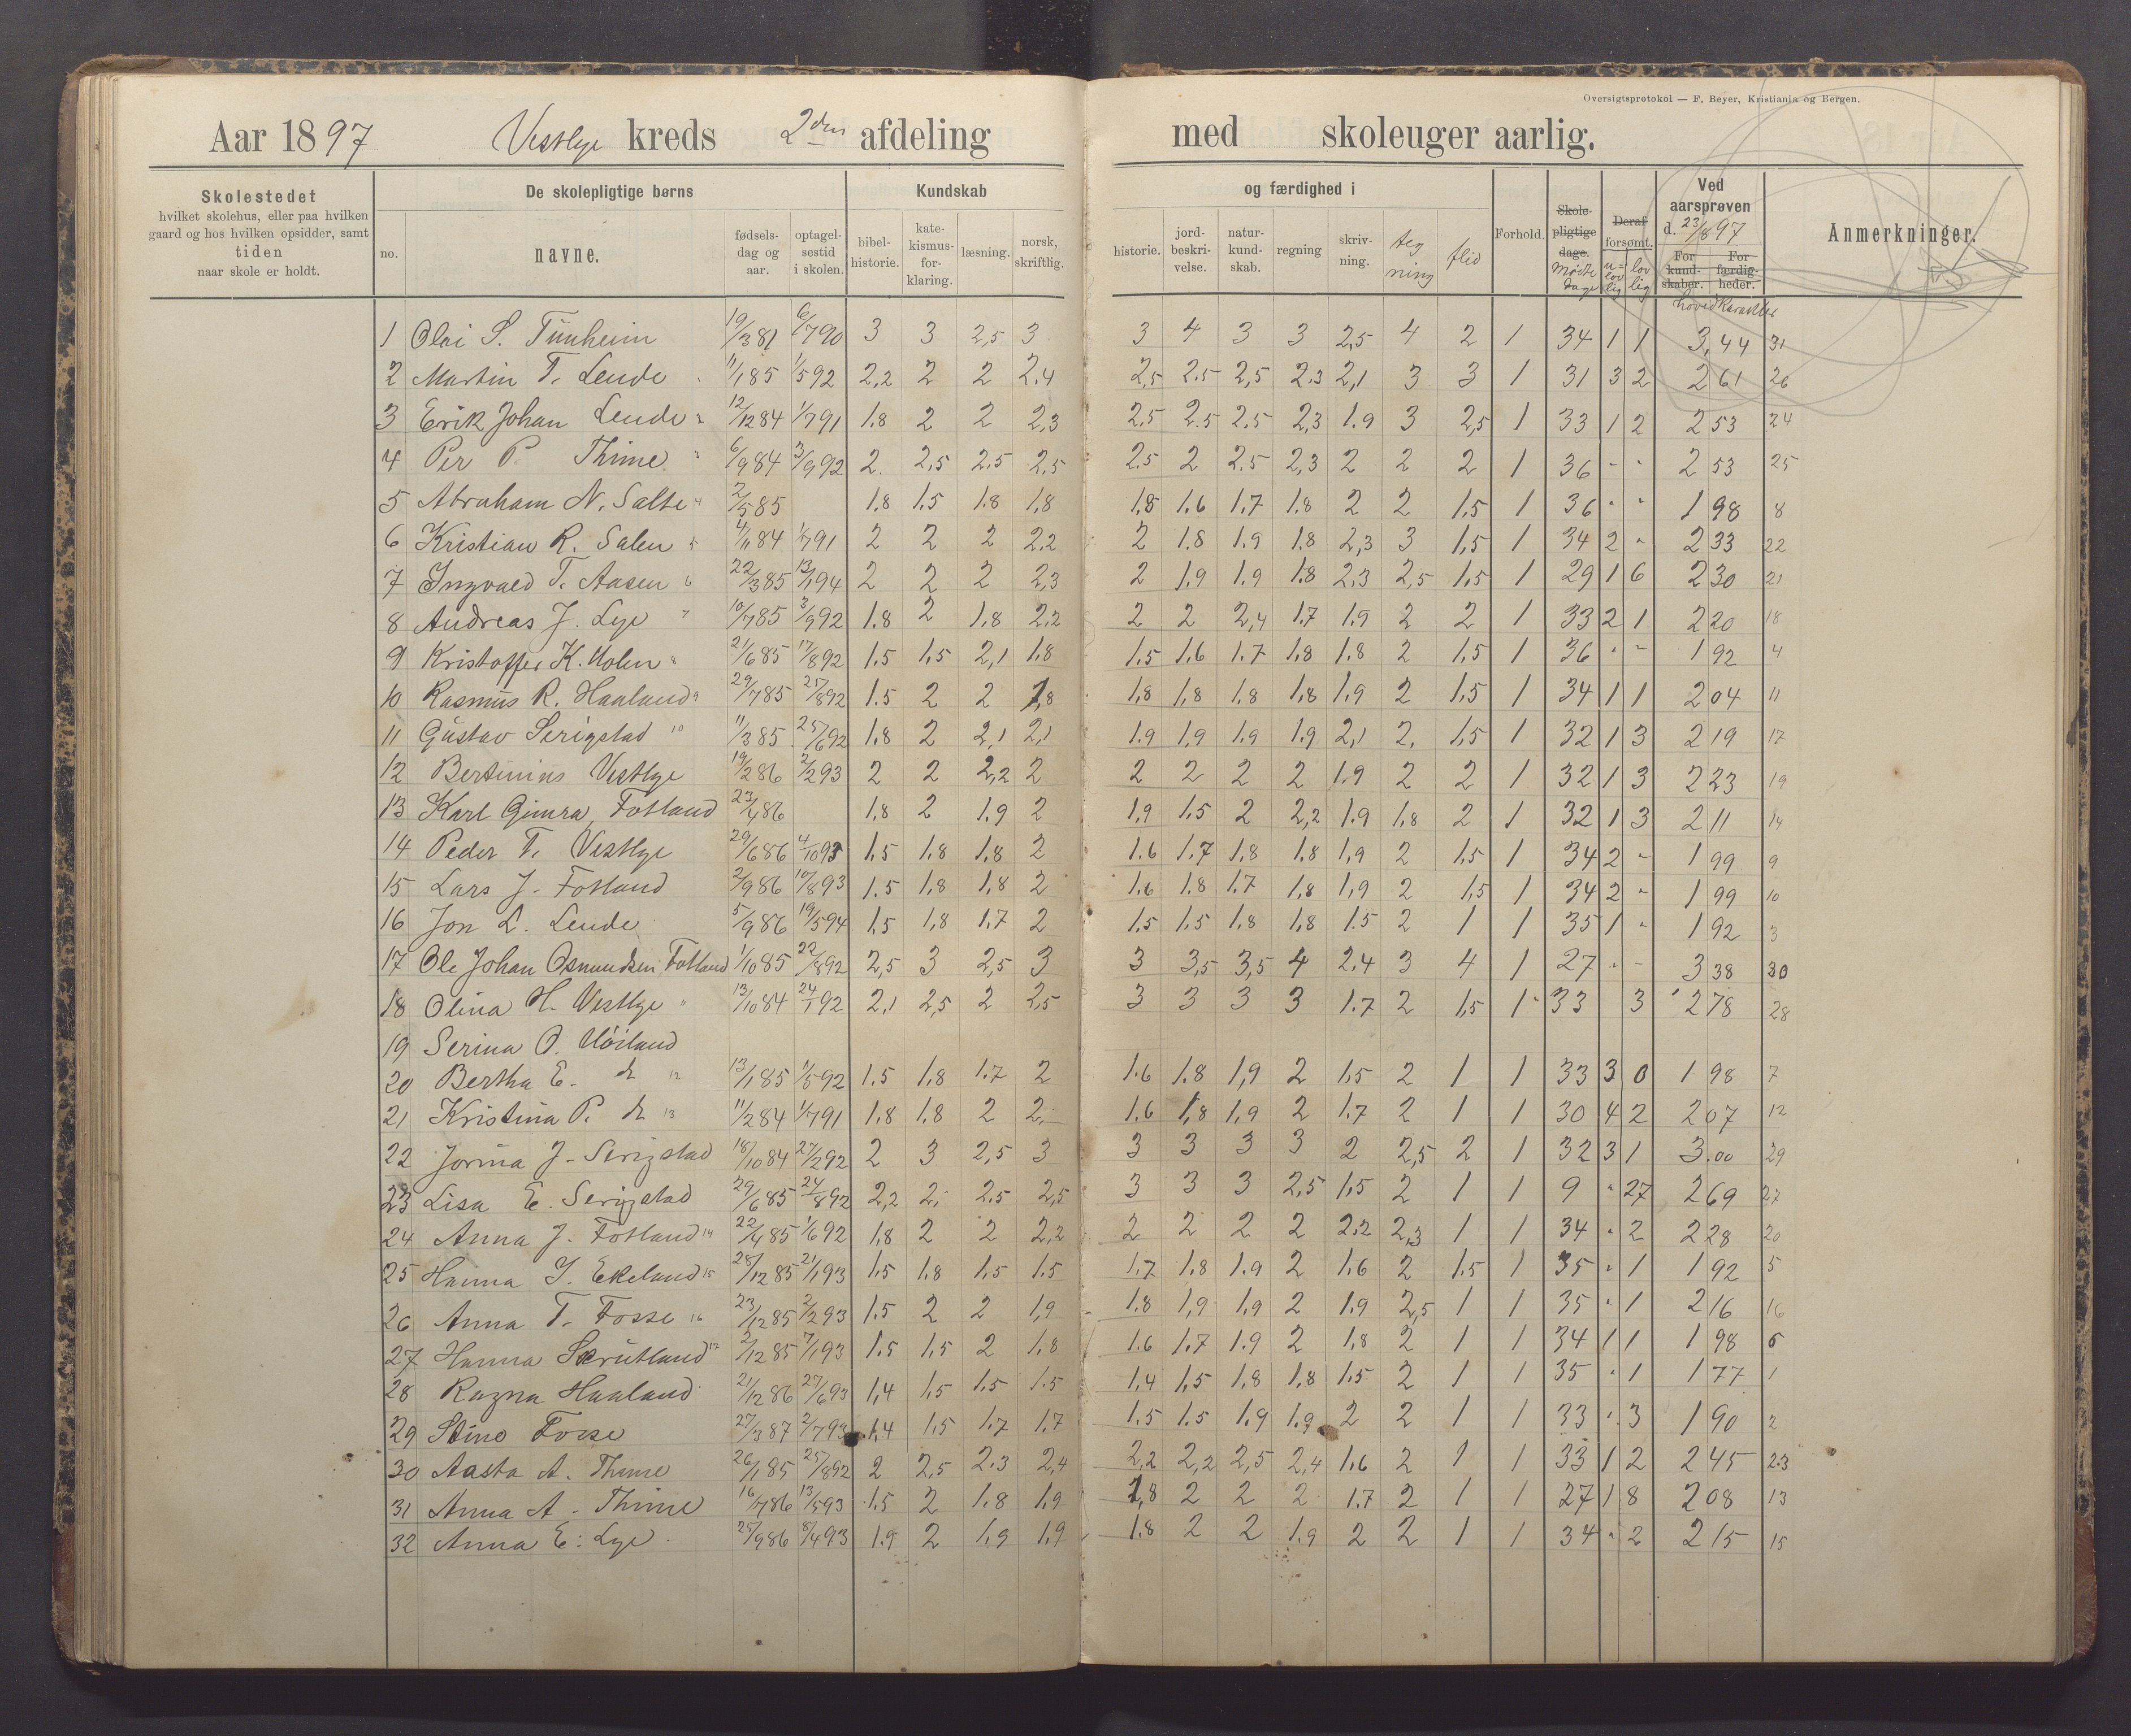 Oversigtsprotokol — F. Beyer, Kristiania og Bergen.
Aar 1897 Vestlye kreds 2den afdeling med skoleuger aarlig.
Skolestedet hvilket skolehus, eller paa hvilken gaard og hos hvilken opsidder, samt tiden naar skole er holdt.
De skolepligtige børns
no. navne. fødsels-dag og aar. optagel-sestid i skolen.
Kundskab og færdighed i
bibel-historie. kate-kismus-for-klaring. læsning. norsk, skriftlig. historie. jord-beskri-velse. natur-kund-skab. regning skriv-ning. teg ning flid
Forhold. Skole-pligtige dage. Mødte dage Deraf forsømt. u=lov lig lov lig
Ved aarsprøven d. 23/8 97 For kund-skaber. For færdig-heder. hovedkarakter
Anmerkninger.
1 Olai S. Tunheim 19/3 81 6/7 90 3 3 2,5 3 3 4 3 3 2,5 4 2 1 34 1 1 3,44 31
2 Martin T. Lende 11/1 85 1/5 92 2,2 2 2 2,4 2,5 2.5 2,5 2.3 2,1 3 3 1 31 3 2 2 61 26
3 Erik Johan Lende 12/12 84 1/7 91 1.8 2 2 2,3 2.5 2.5 2.5 2,3 1.9 3 2,5 1 33 1 2 2 53 24
4 Per P. Thime 6/9 84 3/9 92 2. 2,5 2.5 2,5 2.5 2 2.5 2,3 2 2 2 1 36 - - 2 53 25
5 Abraham N. Salte 2/5 85 1.8 1.5 1.8 1,8 1,8 1.6 1.7 1.8 2 2 1.5 1 36 - - 1 98 8
6 Kristian R. Salen 4/11 84 1/7 91 2 2 2 2,2 2 1.8 1.9 1.8 2,3 3 1,5 1 34 2 - 2 33 22
7 Ingvald T. Aasen 6 22/3 85 13/1 94 2 2 2 2,3 2 1,9 1.9 1.8 2.3 2,5 1,5 1 29 1 6 2 30 21
8 Andreas J. Lye 7 10/7 85 3/9 92 1.8 2 1.8 2,2 2 2 2,4 1.7 1.9 2 2 1 33 2 1 2 20 18
9 Kristoffer K. Holen 21/6 85 17/8 92 1.5 1,5 2,1 1.8 1.5 1,6 1.7 1,8 1.8 2 1,5 1 36 - - 1 92 4
10 Rasmus R. Haaland 9 29/7 85 25/8 92 1.5 2 2 1,8 1,8 1,8 1.8 1,8 1.9 2 1,5 1 34 1 1 2 04 11
11 Gustav Serigstad 10 11/3 85 25/6 92 1.8 2 2,1 2,1 1.9 1,9 1.9 1.9 2,1 2. 1,5 1 32 1 3 2 19 17
12 Bertinius Vestlye 19/2 86 2/2 93 2 2 2,2 2 2 2 2 2 1.9 2 2 1 32 1 3 2 23 19
13 Karl Gimra, Fotland 23/4 86 1.8 2 1.9 2 1,9 1.5 2 2,2 1.9 1,8 2 1 32 1 3 2 11 14
14 Peder T. Vestlye 29/6 86 4/10 93 1,5 1.8 1.8 2 1.6 1.7 1,8 1.8 1,9 2 1,5 1 34 2 - 1 99 9
15 Lars J. Fotland 2/9 86 10/8 93 1.5 1,8 1,8 2 1.6 1.8 1.7 1,8 1,9 2 1,5 1 34 2 - 1 99 10
16 Jon L. Lende 5/9 86 19/5 94 1,5 1,8 1.7 2 1.5 1.5 1.8 1,8 1.5 2 1 1 35 1 - 1 92 3
17 Ole Johan Osmundsen Fotland 1/10 85 22/8 92 2,5 3 2,5 3 3 3,5 3,5 4 2.4 3 4 1 27 - - 3 38 30
18 Olina H. Vestlye 13/10 84 24/1 92 2,1 2,5 2 2,5 3 3 3 3 1.7 2 1,5 1 33 3 2 78 28
19 Serina O. Høiland
20 Bertha E. do 12 13/1 85 1/5 92 1.5 1,8 1.7 2 1.6 1.8 1,9 2 1,5 2 1 1 33 3 0 1 98 7
21 Kristina P. do 13 11/2 84 1/7 91 1.8 1.8 2 2,- 1.6 1,8 1,9 2 1.7 2 1 1 30 4 2 2 07 12
22 Jorina J. Serigstad 18/10 84 27/2 92 2 3 2,5 3 3 3 3 3 2 2,5 2 1 32 3 1 3.00 29
23 Lisa E. Serigstad 29/6 85 24/8 92 2,2 2,- 2.5 2,5 3 3 3 2,5 1,5 2 1 1 9 - 27 2 69 27
24 Anna J. Fotland 14 22/4 85 1/6 92 1,8 2 2 2,2 2 2 2 2 2.2 2,3 1 1 34 - 2 2 28 20
25 Hanna J. Ekeland 15 28/12 85 21/1 93 1,5 1,8 1,5 1.5 1.7 1.8 1.9 2 1,6 2 1.5 1 35 - 1 1 92 5
26 Anna T. Fosse 16 23/12 85 2/2 93 1,5 2 2 1,9 1.8 1,9 1,9 2 1.9 2,5 1 1 35 - 1 2 16 16
27 Hanna Skrutland 17 2/12 85 7/1 93 1.5 1,5 2 1.8 1.6 1.7 1.9 2 1,8 2 1 1 34 1 1 1 98 6
28 Ragna Haaland 21/12 86 27/6 93 1,4 1,5 1.5 1.5 1,4 1,5 1,8 1,8 1.5 2 1 1 35 - 1 1 77 1
29 Stine Fosse 27/3 87 2/7 93 1,4 1,5 1.7 1.7 1.5 1.5 1.9 1.9 2 2 1 1 33 - 3 1 90 2
30 Aasta A. Thime 26/1 85 25/8 92 2 2,5 2.3 2,4 2,2 2,2 2,5 2,4 1,6 2 1 1 33 1 2 2 45 23
31 Anna A. Thime 16/7 86 13/5 93 1.5 2 1.8 1,9 1,8 2 2 2 1.7 2 1 1 27 1 8 2 08 13
32 Anna E. Lye 25/9 86 8/4 93 1.9 2 1,9 1,9 1.8 2 2 1.9 2 2 1 1 34 - 2 2 15 15